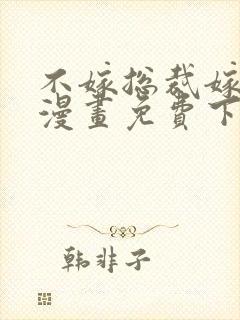 不嫁总裁嫁
漫畫免費下
韩非子